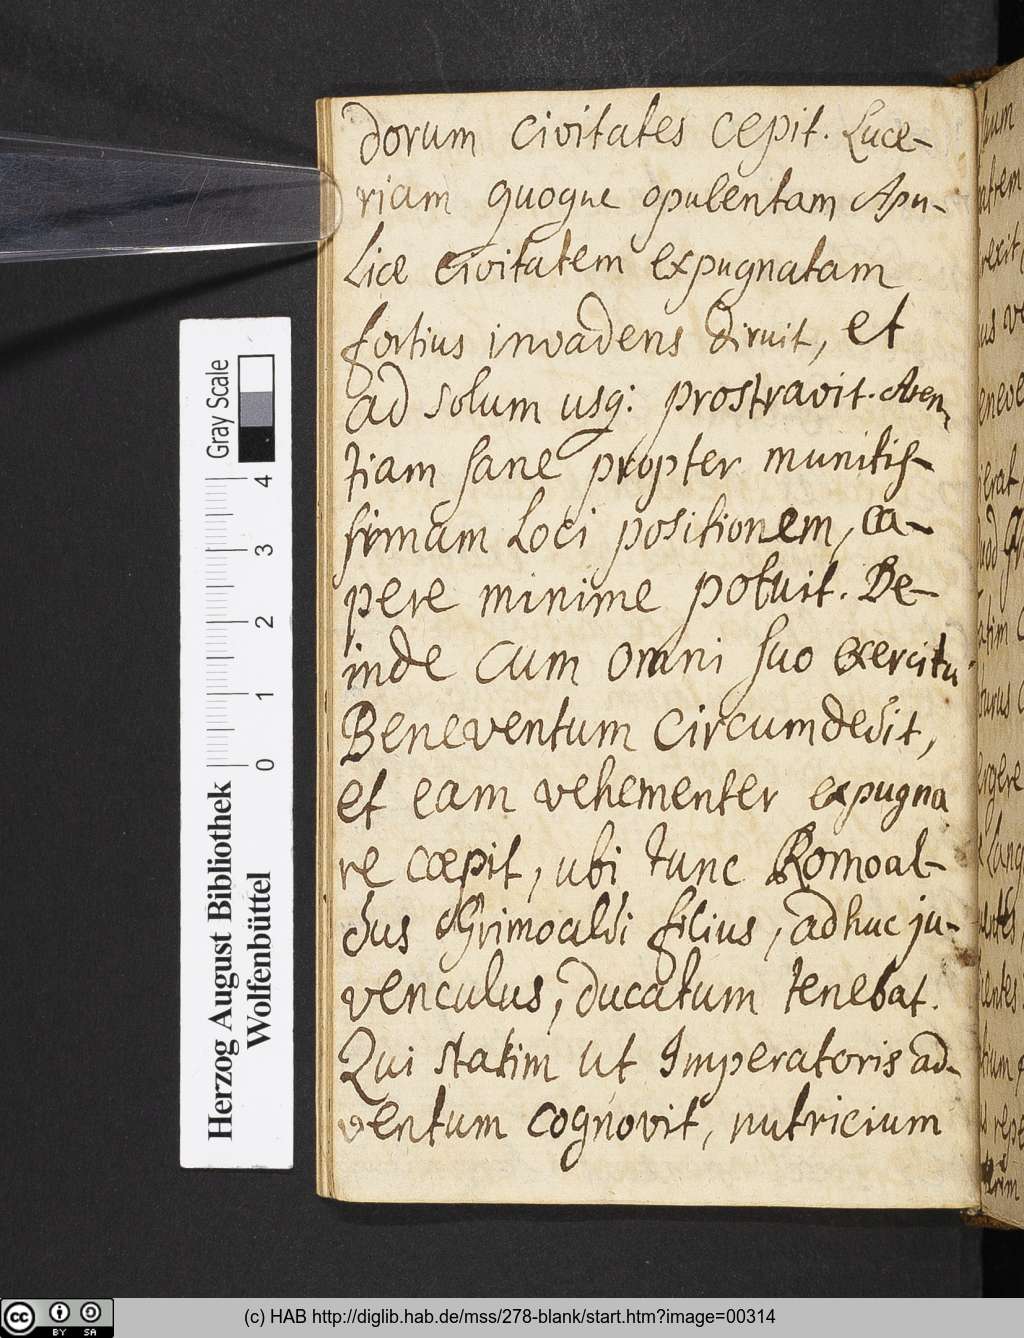 dorum civitates cepit. Luce-
riam quoque opulentam Apu-
liæ civitatem expugnatam
fortius invadens diruit, et
ad solum usq: prostravit. Aren
tiam sane propter munitis-
simam loci positionem, ca-
pere minime potuit. De-
inde cum omni suo exercitu
Beneventum circumdedit,
et eam vehementer expugna
re cœpit, ubi tunc Romoal-
dus Grimoaldi filius, adhuc ju-
venculus, ducatum tenebat.
Qui statim ut Imperatoris ad-
ventum cognovit, nutricium
Herzog August Bibliothek
Wolfenbüttel
0 1 2 3 4
Gray Scale
cc BY SA
(c) HAB http://diglib.hab.de/mss/278-blank/start.htm?image=00314